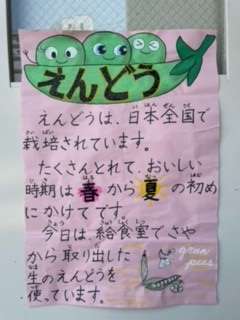 えんどう
えんどうは、日本全国で
栽培されています。
たくさんとれて、おいしい
時期は春から夏の初め
にかけてです。
今日は、給食室でさや
から取り出した
生のえんどうを
使っています。
green
peas